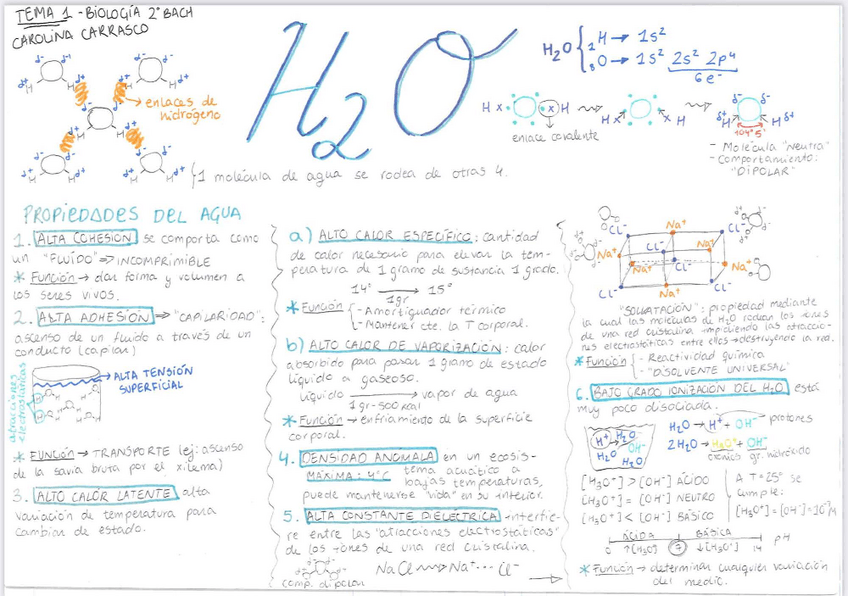 TEMA 1 - BIOLOGÍA 2º BACH
CAROLINA CARRASCO
H₂O
enlaces de
hidrógeno
1 molécula de agua se rodea de otras 4.
H₂O { ₁H → 1s²
₈O → 1s² 2s² 2p⁴
6e⁻
enlace covalente
104'5°
- Molécula "neutra"
- Comportamiento:
"DIPOLAR"
PROPIEDADES DEL AGUA
1. ALTA COHESIÓN se comporta como
un "FLUÍDO" ⇒ INCOMPRIMIBLE
* Función → dar forma y volumen a
los seres vivos.
2. ALTA ADHESIÓN → "CAPILARIDAD":
ascenso de un fluido a través de un
conducto (capilar)
ALTA TENSIÓN
SUPERFICIAL
atracciones
electrostáticas
* Función → TRANSPORTE (ej: ascenso
de la savia bruta por el xilema)
3. ALTO CALOR LATENTE, alta
variación de temperatura para
cambiar de estado.
a) ALTO CALOR ESPECÍFICO: cantidad
de calor necesario para elevar la tem-
peratura de 1 gramo de sustancia 1 grado.
14° → 15°
1gr
* Función { - Amortiguador térmico
- Mantener cte. la T corporal.
b) ALTO CALOR DE VAPORIZACIÓN: calor
absorbido para pasar 1 gramo de estado
líquido a gaseoso.
líquido → vapor de agua
1gr-500 kcal
* Función → enfriamiento de la superficie
corporal.
4. DENSIDAD ANÓMALA en un ecosis-
MÁXIMA: 4°C tema acuático a
bajas temperaturas,
puede mantenerse "vida" en su interior.
5. ALTA CONSTANTE DIELÉCTRICA -interfie-
re entre las "atracciones electrostáticas"
de los iones de una red cristalina.
comp. dipolar
NaCl → Na⁺ ··· Cl⁻
Cl⁻ Na⁺ Cl⁻
Na⁺ Cl⁻ Na⁺
Na⁺ Cl⁻ Na⁺
Cl⁻ Na⁺ Cl⁻
"SOLVATACIÓN": propiedad mediante
la cual las moléculas de H₂O rodean los iones
de una red cristalina impidiendo las atraccio-
nes electrostáticas entre ellos → destruyendo la red.
* Función { - Reactividad química
- "DISOLVENTE UNIVERSAL"
6. BAJO GRADO IONIZACIÓN DEL H₂O, está
muy poco disociada:
H₂O → H⁺ + OH⁻ protones
2H₂O → H₃O⁺ + OH⁻
gr. hidróxido
H⁺ H₂O
OH⁻
H₂O
H₂O
[H₃O⁺] > [OH⁻] ÁCIDO
[H₃O⁺] = [OH⁻] NEUTRO
[H₃O⁺] < [OH⁻] BÁSICO
A T=25° se
cumple:
ÁCIDA BÁSICA
pH
0 ↑[H₃O] 7 ↓[H₃O⁺] 14
* Función → determinar cualquier variación
del medio.